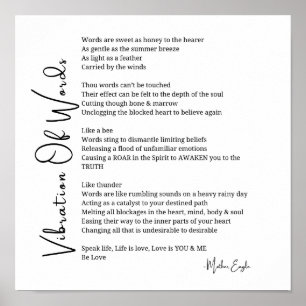 Vibration Of Words
Words are sweet as honey to the hearer
As gentle as the summer breeze
As light as a feather
Carried by the winds
Thou words can't be touched
Their effect can be felt to the depth of the soul
Cutting though bone & marrow
Unclogging the blocked heart to believe again
Like a bee
Words sting to dismantle limiting beliefs
Releasing a flood of unfamiliar emotions
Causing a ROAR in the Spirit to AWAKEN you to the
TRUTH
Like thunder
Words are like rumbling sounds on a heavy rainy day
Acting as a catalyst to your destined path
Melting all blockages in the heart, mind, body & soul
Easing their way to the inner parts of your heart
Changing all that is undesirable to desirable
Speak life, Life is love, Love is YOU & ME
Be Love
-Mother Eagle